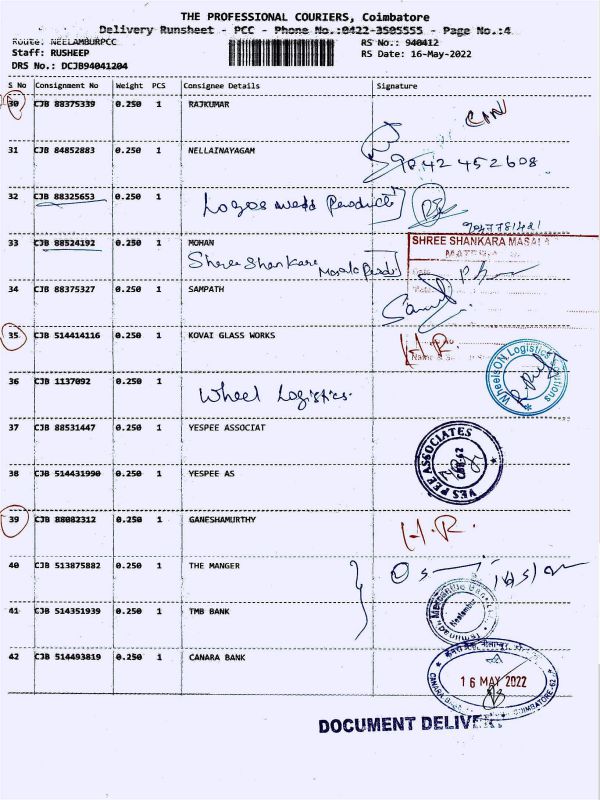 THE PROFESSIONAL COURIERS, Coimbatore
Delivery Runsheet - PCC - Phone No.:0422-3505555 - Page No.:4
Route: NEELAMBURPCC RS No.: 940412
Staff: RUSHEEP RS Date: 16-May-2022
DRS No.: DCJB94041204
S No Consignment No Weight PCS Consignee Details Signature
30 CJB 88375339 0.250 1 RAJKUMAR
31 CJB 84852883 0.250 1 NELLAINAYAGAM
9042452608
32 CJB 88325653 0.250 1 Logos Product
33 CJB 88524192 0.250 1 MOHAN
SHREE SHANKARA MASALA
Shree Shankara Masala
34 CJB 88375327 0.250 1 SAMPATH
35 CJB 514414116 0.250 1 KOVAI GLASS WORKS H.R.
WheelsON Logistics Solutions
36 CJB 1137092 0.250 1 Wheel Logistics.
37 CJB 88531447 0.250 1 YESPEE ASSOCIAT
YES PEE ASSOCIATES
38 CJB 514431990 0.250 1 YESPEE AS
39 CJB 88082312 0.250 1 GANESHAMURTHY H.R.
40 CJB 513875882 0.250 1 THE MANGER
41 CJB 514351939 0.250 1 TMB BANK
Neelambur
42 CJB 514493819 0.250 1 CANARA BANK
16 MAY 2022
CANARA COIMBATORE-62
DOCUMENT DELIVE